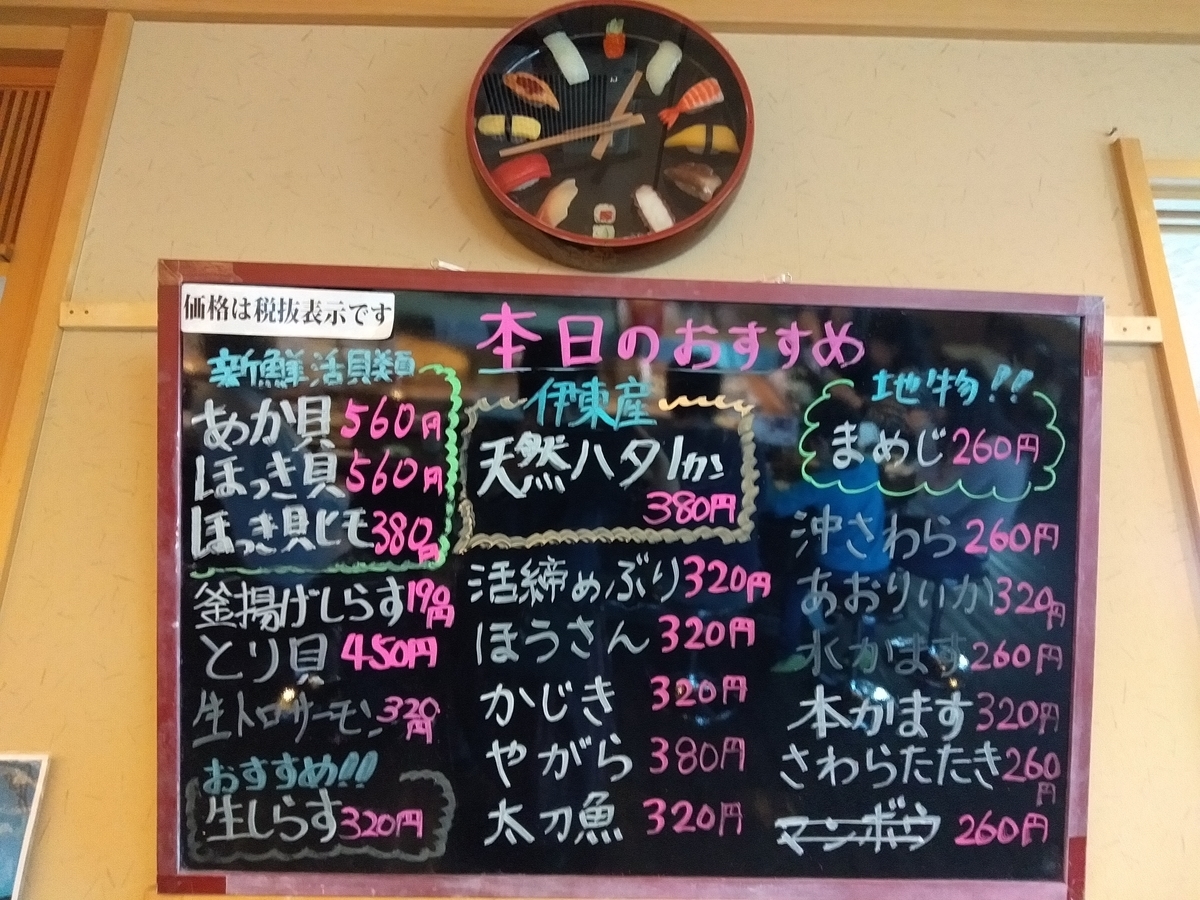 価格は税抜表示です
本日のおすすめ
新鮮活貝類
あか貝 560円
ほっき貝 560円
ほっき貝ヒモ 380円
釜揚げしらす 190円
とり貝 450円
生トロサーモン 320円
おすすめ!!
生しらす 320円
伊東産
天然ハタ1かん
380円
活締めぶり 320円
ほうさん 320円
かじき 320円
やがら 380円
太刀魚 320円
地物!!
まめじ 260円
沖さわら 260円
あおりいか 320円
水かます 260円
本かます 320円
さわらたたき 260円
マンボウ 260円